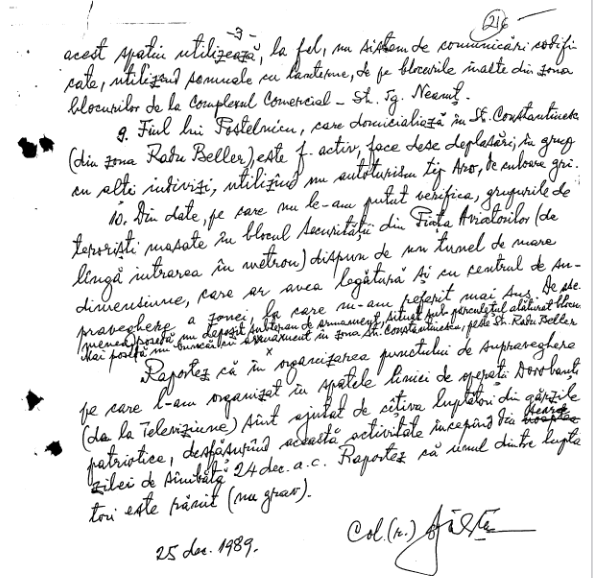 -3-
216
acest spațiu utilizează, la fel, un sistem de comunicări codifi
cate, utilizînd semnale cu lanterne, de pe blocurile înalte din zona
blocurilor de la Complexul Comercial - St. Tg. Neamț.
9. Fiul lui Postelnicu, care domiciliază în St. Constantinescu
(din zona Radu Beller), este f. activ, face dese deplasări, în grup
cu alți indivizi, utilizînd un autoturism tip Aro, de culoare gri.
10. Din date, pe care nu le-am putut verifica, grupurile de
teroriști masate în blocul Securității din Piața Aviatorilor (de
lîngă intrarea în metrou) dispun de un tunel de mare
dimensiune, care ar avea legătură și cu centrul de su-
praveghere a zonei, la care m-am referit mai sus. De ase
menea, posedă un depozit subteran de armament, situat sub parculețul alăturat blocu
Mai posedă un buncăr cu armament în zona St. Constantinescu, pe St. Radu Beller
Raportez că în organizarea punctului de supraveghere
pe care l-am organizat în spatele liniei de operații Dorobanți
(da la Televiziune) sînt ajutat de cîțiva luptători din gărzile
patriotice, desfășurînd această activitate începînd din seara
zilei de sîmbătă 24 dec. a.c. Raportez că unul dintre luptă
tori este rănit (nu grav).
Col. (r.)
25 dec. 1989.